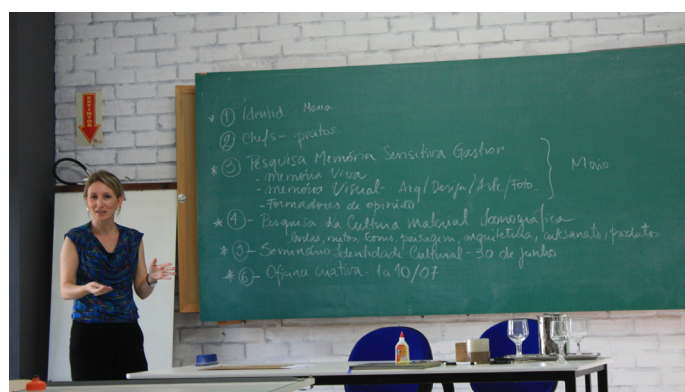 EXTINTOR
* ① Identid - Marca
② Chefs - pratos
* ③ Pesquisa Memória Sensitiva Gastron
- memória Viva
- memória Visual - Arq/Design/Arte/Foto.
- Formadores de opinião
Maio
* ④ - Pesquisa da Cultura Material Iconográfica
lendas, mitos, ícones, paisagem, arquitetura, artesanato, produtos
* ⑤ - Seminário Identidade Cultural - 30 de junho
* ⑥ - Oficina criativa - 1a 10/07